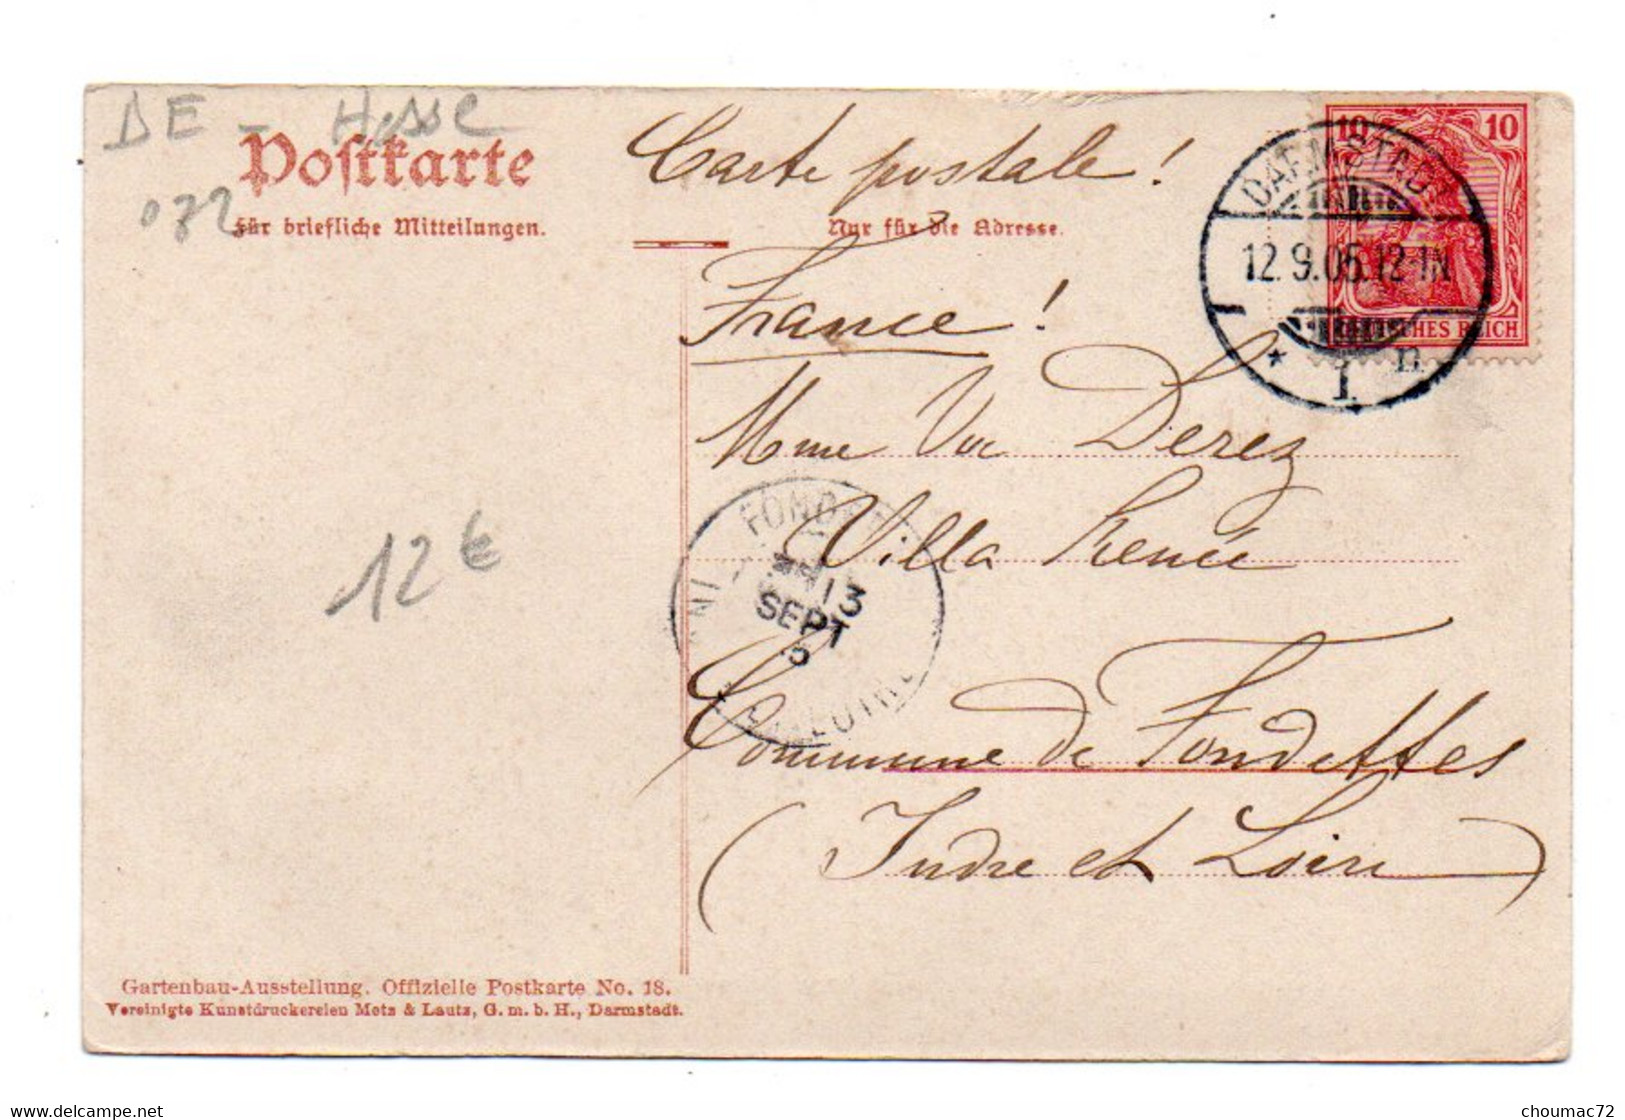 DE - Hesse
Postkarte
Carte postale !
032
für briefliche Mitteilungen.
Nur für die Adresse.
10 10
DEUTSCHES REICH
DARMSTADT
12.9.05.12-1N
* 1 n
France !
Mme Vve Derez
Villa Renée
13
SEPT
12 €
Commune de Fondettes
(Indre et Loire)
Gartenbau-Ausstellung. Offizielle Postkarte No. 18.
Vereinigte Kunstdruckereien Metz & Lautz, G. m. b. H., Darmstadt.
delcampe.net
choumac72